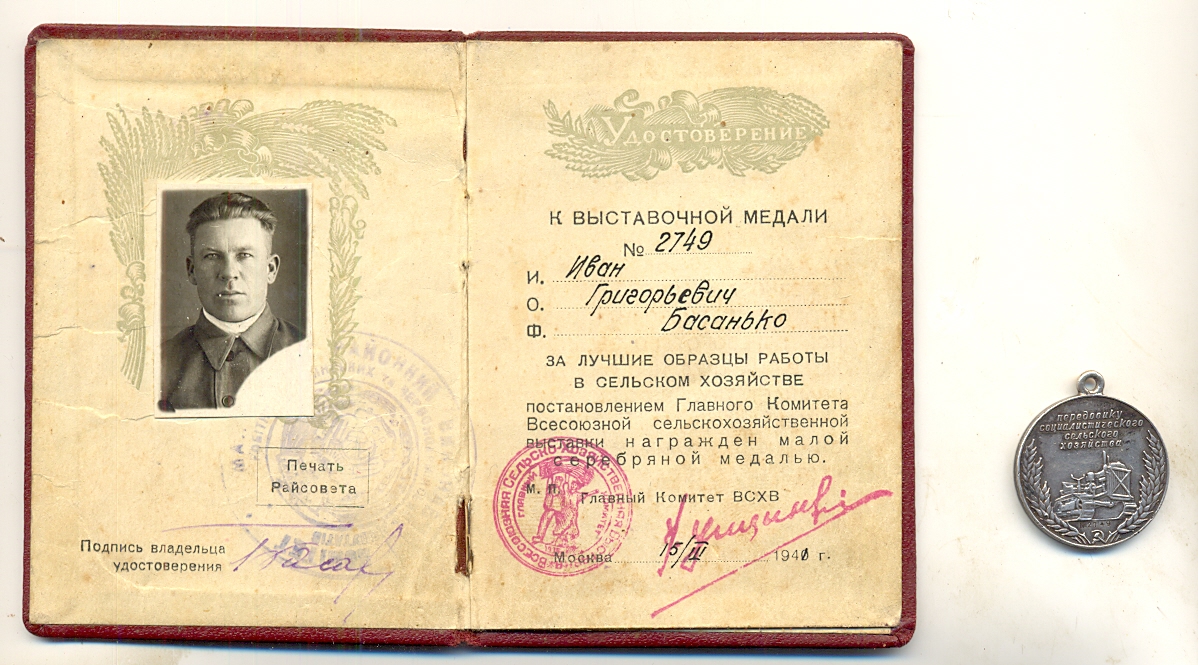 Печать
Райсовета
Подпись владельца
удостоверения
УДОСТОВЕРЕНИЕ
К ВЫСТАВОЧНОЙ МЕДАЛИ
№ 2749
И. Иван
О. Григорьевич
Ф. Басанько
ЗА ЛУЧШИЕ ОБРАЗЦЫ РАБОТЫ
В СЕЛЬСКОМ ХОЗЯЙСТВЕ
постановлением Главного Комитета
Всесоюзной сельскохозяйственной
выставки награжден малой
серебряной медалью.
М. П. Главный Комитет ВСХВ
Москва 15/III 194 г.
ВСЕСОЮЗНАЯ СЕЛЬСКО-ХОЗЯЙСТВЕННАЯ
ГЛАВНЫЙ КОМИТЕТ
передовику
социалистического
сельского
хозяйства